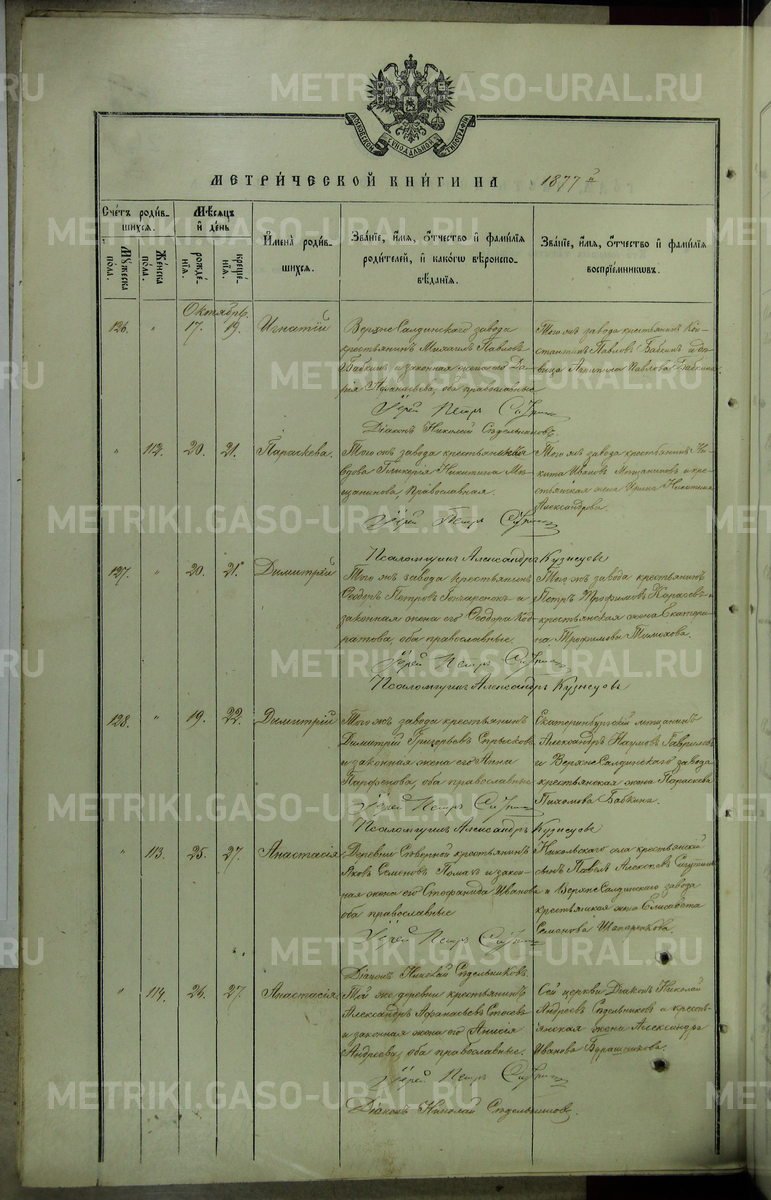 METRIKI.GASO-URAL.RU
МОСКОВСКОЙ СѴНОДАЛЬНОЙ ТИПОГРАФІИ
МЕТРИ́ЧЕСКОЙ КНИ́ГИ НА 1877 й
Сче́тъ роди́в-
шихся.
Мꙋ́жеска
по́ла.
Же́нска
по́ла.
Мѣ́сяцъ
и҆ де́нь
рожде́-
нїѧ.
креще́-
нїѧ.
И҆мена̀ роди́в-
шихся.
Зва́нїе, и҆́мѧ, ѻ҆́тчество и҆ фами́лїѧ
роди́телей, и҆ како́гѡ вѣроиспо-
вѣ́данїѧ.
Зва́нїе, и҆́мѧ, ѻ҆́тчество и҆ фами́лїѧ
воспрїе́мникѡвъ.
Октябрь.
126. " 17. 19. Игнатій
Верхне Салдинскаго завода
крестьянинъ Михаилъ Павловъ
Бабкинъ и законная жена его Да-
рія Аѳанасьева, оба православные
Іерей Петръ
Діаконъ Николай Сѣдельниковъ.
Того жъ завода крестьянинъ Кон-
стантинъ Павловъ Бабкинъ и дѣ-
вица Павлова Бабкина
" 112. 20. 21. Параскева.
Того жъ завода крестьянская
вдова Гликерія Никитина Мѣ-
щанинова, Православная.
Іерей Петръ
Псаломщикъ Александръ Кузнецовъ
Того жъ завода крестьянинъ Ни-
кита Ивановъ Мѣщаниновъ и кре-
стьянская жена Ирина Никитина
Александрова
127. " 20. 21. Димитрій
Того жъ завода крестьянинъ
Ѳеодотъ Петровъ Гончаренокъ и
законная жена его Ѳеодора Код-
ратова оба православные.
Іерей Петръ
Псаломщикъ Александръ Кузнецовъ
Того жъ завода крестьянинъ
Петръ Трофимовъ Карасевъ и
крестьянская жена Екатери-
на Трофимова Тимохова.
128. " 19. 22. Димитрій
Того жъ завода крестьянинъ
Димитрій Григорьевъ
и законная жена его Анна
Парфенова, оба православные
Іерей Петръ
Псаломщикъ Александръ Кузнецовъ
Екатеринбургскій мѣщанинъ
Александръ Наумовъ Гавриловъ
и Верхне Салдинскаго завода
крестьянская жена Параскева
Пахомова Бабкина.
" 113. 25. 27. Анастасія
Деревни Сѣверной крестьянинъ
Яковъ Семеновъ и закон-
ная жена его Стефанида Иванова
оба православные
Іерей Петръ
Діаконъ Николай Сѣдельниковъ.
Никольскаго села крестьянскій
сынъ Павелъ Алексѣевъ
и Верхне Салдинскаго завода
крестьянская жена Елисавета
Семенова
" 114. 26. 27. Анастасія.
Той же деревни крестьянинъ
Александръ Аѳанасьевъ
и законная жена его Анисія
Андреева, оба православные.
Іерей Петръ
Діаконъ Николай Сѣдельниковъ
Сей церкви Діаконъ Николай
Андреевъ Сѣдельниковъ и кресть-
янская жена Александра
Иванова